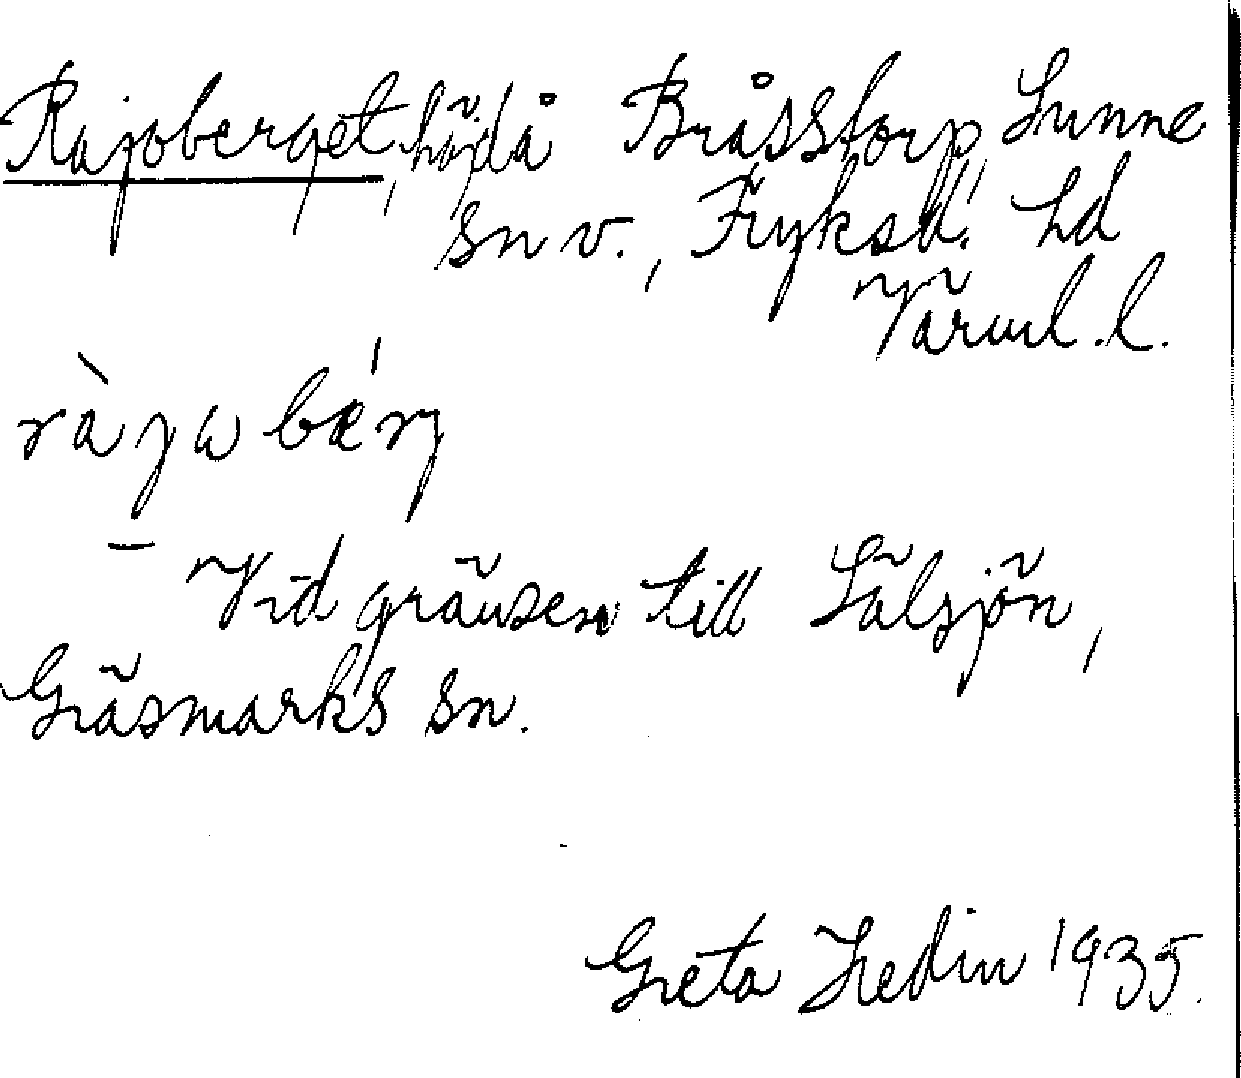 Rajoberget, höjd å Bråsstorp, Sunne
sn v., Fryksd. hd
Värml. l.
ràjωbǽrj
– Vid gränsen till Lälsjön,
Gräsmarks sn.
Greta Hedin 1935.